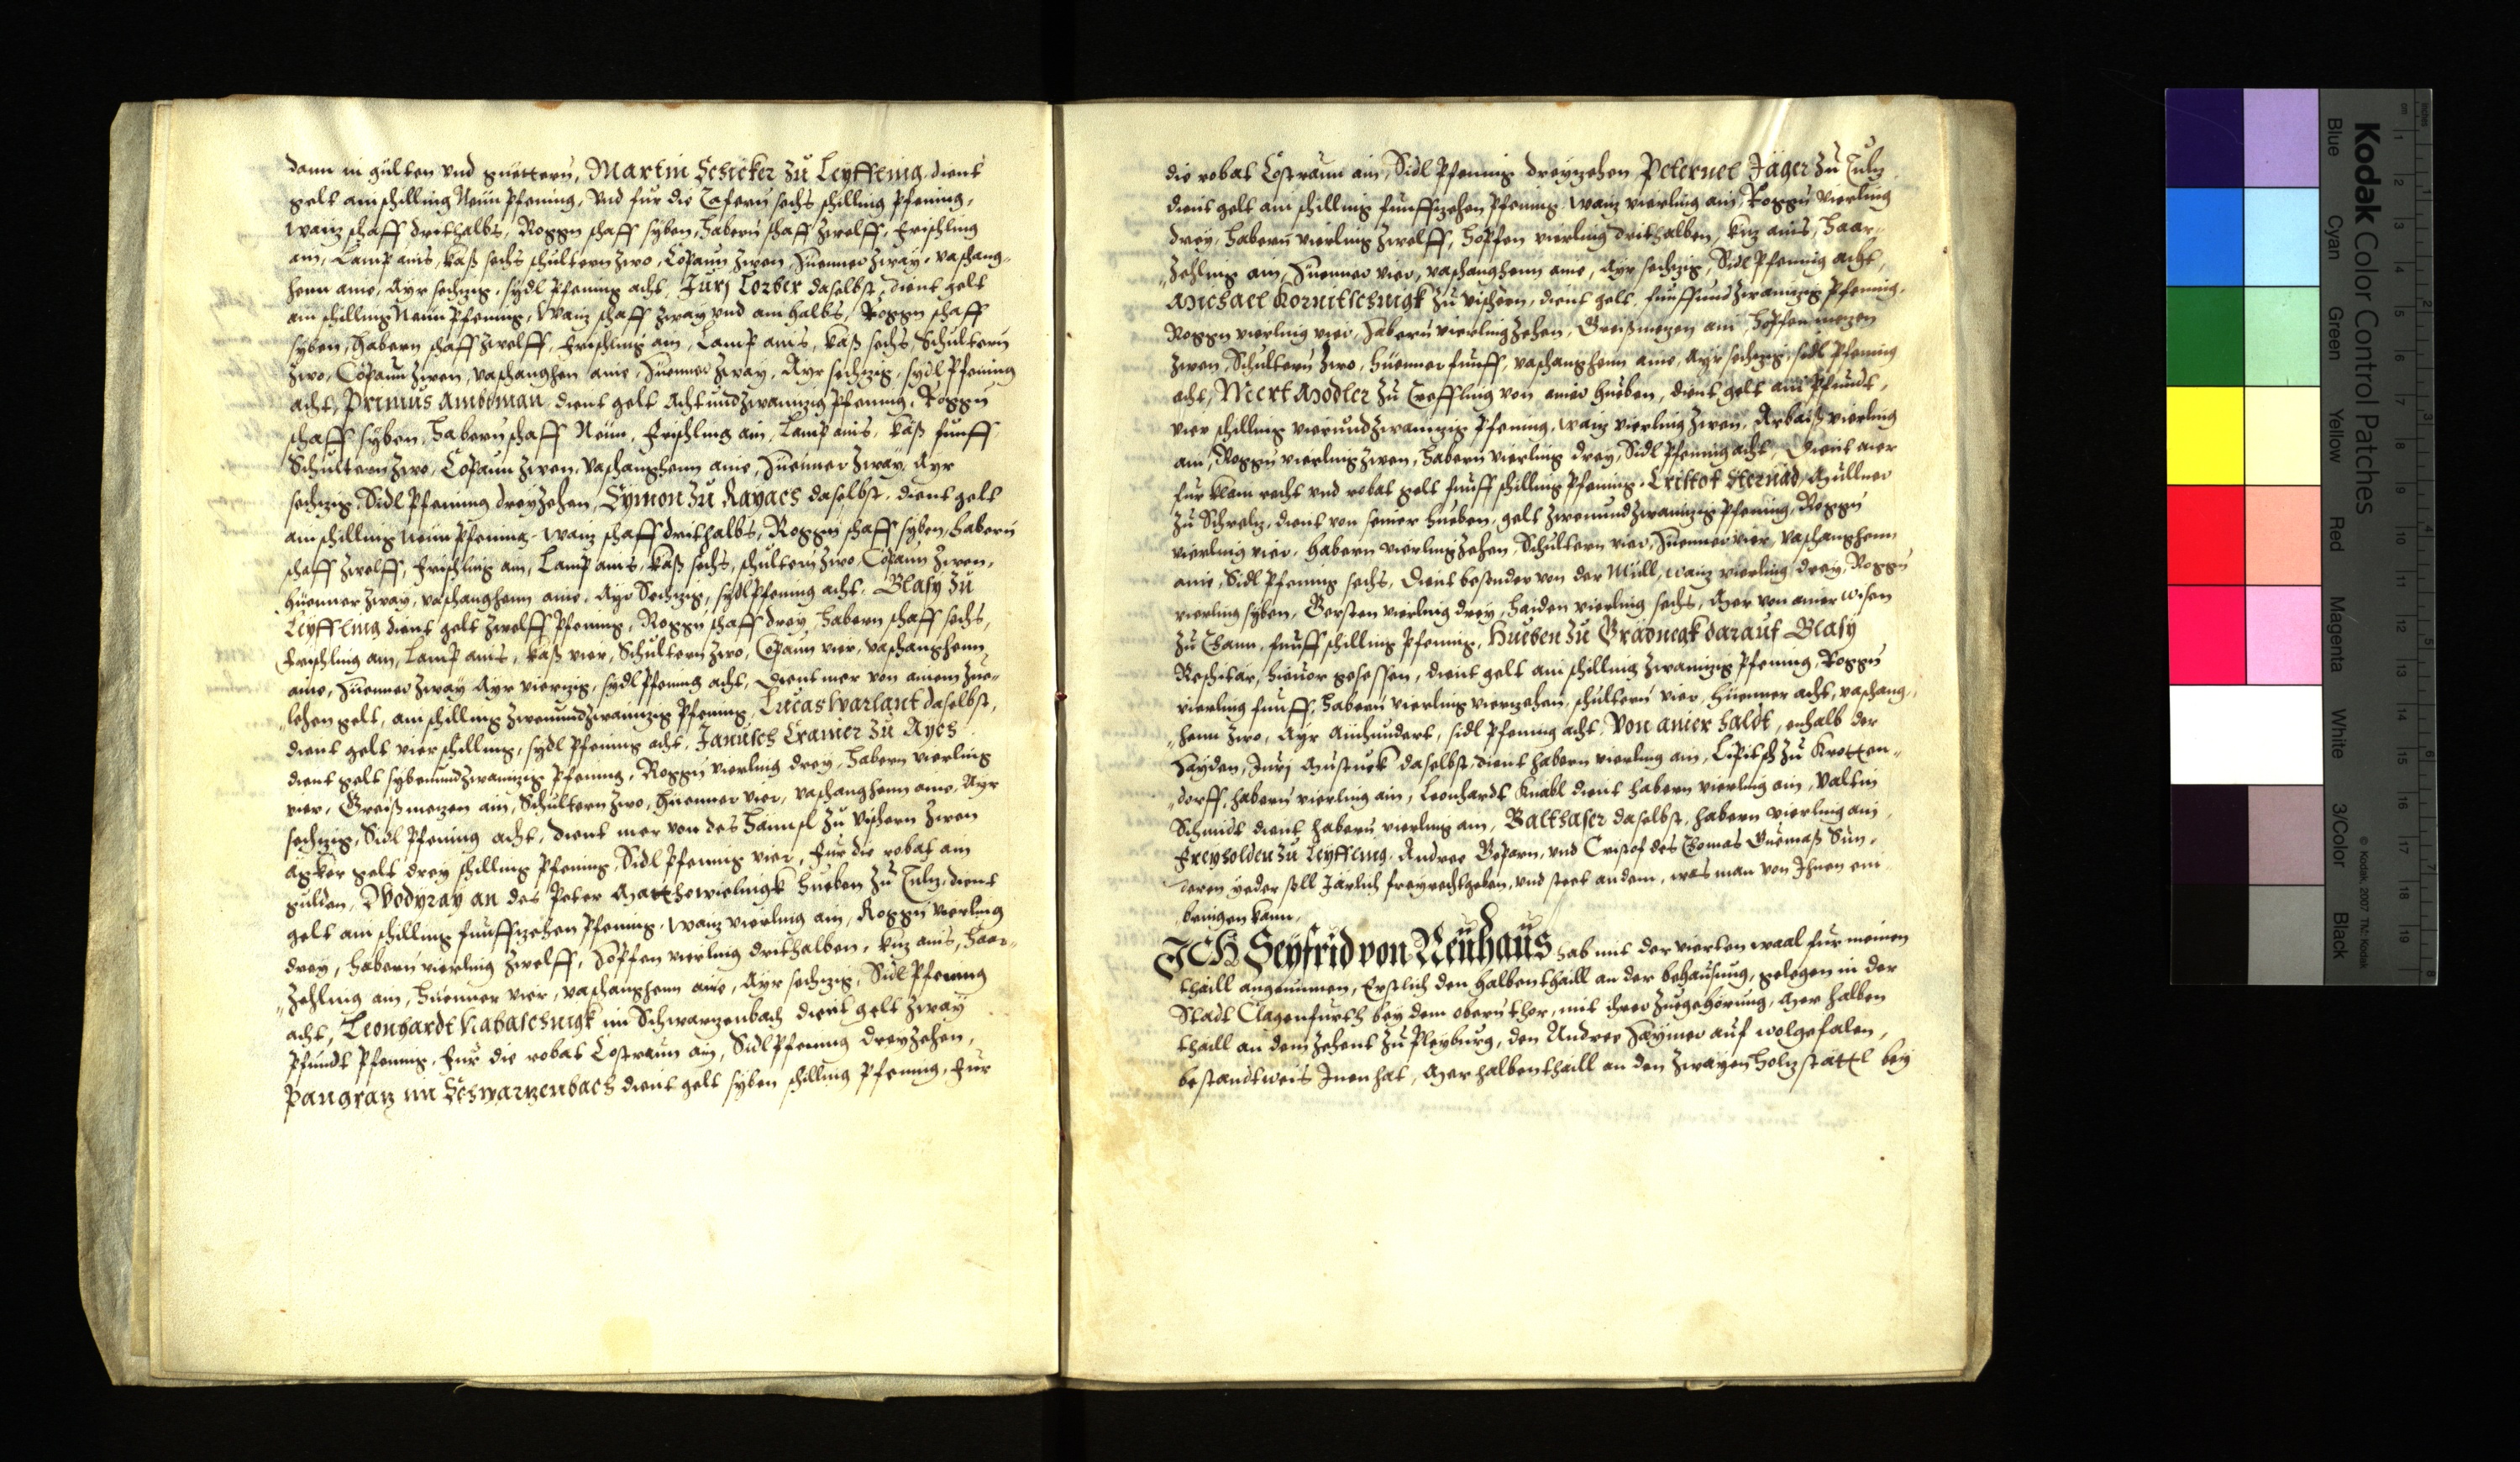 dann in gülten vnd guettern, Martin Schicker zu Leyffling dient
gelt ain schilling Neün Pfening, Vnd für die Tafern sechs schilling Pfening,
Waiz schaff drithalbs, Roggn schaff syben, Habern schaff Zwelff, Frischling
ain, Lamp ains, käß sechs, schultern Zwo, Copaun Zwen, Huenner Zway, vaschang-
henn aine, Ayr sechzig, sydl Pfening acht, Jurj Lorber daselbst, dient gelt
ain schilling Neün Pfening, Waiz schaff Zway vnd ain halbs, Roggn schaff
syben, Habern schaff Zwelff, Frischling ain, Lamp ains, käß sechs, Schultern
Zwo, Copaun Zwen, vaschanghen aine, Huenner Zway, Ayr sechzig, sydl Pfening
acht, Primus Ambtman, dient gelt Achtundzwainzig Pfening, Roggn
schaff syben, Habern schaff Neün, Frischling ain, Lamp ains, käß funff
Schultern Zwo, Copaun Zwen, Vaschanghenn aine, Huenner Zway, Ayr
sechzig, Sidl Pfening dreyzehen, Symon zu Rayach daselbst, dient gelt
ain schilling neün Pfening, Waiz schaff drithalbs, Roggn schaff syben, Habern
schaff Zwelff, Frischling ain, Lamp ains, käß sechs, schultern Zwo, Copaun Zwen,
Huenner Zway, vaschanghenn aine, Ayr Sechzig, sydl Pfening acht, Blasy zu
Leyffling dient gelt Zwelff Pfening, Roggn schaff drey, Habern schaff sechs,
Frischling ain, Lamp ains, käß vier, Schultern Zwo, Copaun vier, vaschanghenn
aine, Huenner Zway, Ayr vierzig, sydl Pfening acht, Dient mer von ainem Zue-
lehen gelt, ain schilling Zwenundzwainzig Pfening, Lucas Warlant daselbst,
dient gelt vier schilling, sydl Pfening acht, Janusch Cramer zu Aych
dient gelt sybenundzwainzig Pfening, Roggn vierling drey, Habern vierling
vier, Greißmezen ain, Schultern Zwo, Huenner vier, vaschanghenn aine, Ayr
sechzig, Sidl Pfening acht, Dient mer von des Hainsl zu Vischern Zwen
äcker gelt drey schilling Pfening, Sidl Pfening vier, Für die robat ain
gulden, Wodyray an des Peter Matthewitschnigk Hueben zu Culm, dient
gelt ain schilling funffzehen Pfening, Waiz vierling ain, Roggn vierling
drey, Habern vierling Zwelff, Hopffen vierling drithalben, kuz ains, Haar-
Zehling ain, Huenner vier, vaschanghenn aine, Ayr sechzig, Sidl Pfening
acht, Leonhardt Nabaschnigk im Schwarzenbach dient gelt Zway
Pfundt Pfening, Für die robat Costraun ain, Sidl Pfening dreyzehen,
Pangraz im Schwarzenbach dient gelt syben schilling Pfening, Für
die robat Costraun ain, Sidl Pfening dreyzehen Peternel Jäger zu Culm
dient gelt ain schilling funffzehen Pfening, Waiz vierling ain, Roggn vierling
drey, Habern vierling Zwelff, Hopffen vierling drithalben, kuz ains, Haar-
Zehling ain, Huenner vier, vaschanghenn aine, Ayr sechzig, Sidl Pfening acht,
Michael Kornitschnigk zu Vischern, dient gelt, funffundzwainzig Pfening,
Roggn vierling vier, Habern vierling Zehen, Greißmezen ain, Hopffen mezen
Zwen, Schultern Zwo, Huenner funff, vaschanghenn aine, Ayr sechzig, sidl Pfening
acht, Mert Modler zu Treffling von ainer Hueben, dient gelt ain Pfundt,
vier schilling vierundzwainzig Pfening, Waiz vierling Zwen, Arbaiß vierling
ain, Roggn vierling Zwen, Habern vierling drey, Sidl Pfening acht, Dient mer
für klain recht vnd robat gelt funff schilling Pfening, Cristof Sternad, Müllner
zu Schrelz, dient von seiner Hueben, gelt Zwenundzwainzig Pfening, Roggn
vierling vier, Habern vierling Zehen, Schultern vier, Huenner vier, vaschanghenn
aine, Sidl Pfening sechs, Dient besonder von der Mull, Waiz vierling drey, Roggn
vierling syben, Gersten vierling drey, Haiden vierling sechs, Mer von ainer wisen
zu Thann, funff schilling Pfening, Hueben zu Gradnegk darauf Blasy
Reschitar, hieuor gesessen, dient gelt ain schilling Zwainzig Pfening, Roggn
vierling funff, Habern vierling vierzehen, schultern vier, Huenner acht, vaschang-
henn Zwo, Ayr Ainhundert, sidl Pfening acht, Von ainer Haldt, enhalb der
Hayden, Jurj Mustuck daselbst, dient habern vierling ain, Lipitsch zu Krotten-
dorff, habern vierling ain, Leonhardt Knabl dient habern vierling ain, Valtin
Schmidt dient habern vierling ain, Balthaser daselbst, habern vierling ain,
Freyholden zu Leyffling, Andree Gosarn, vnd Cristof des Thomas Guemaß Sun,
deren yeder soll Järlich freyrecht geben, vnd steet an dem, was man von Ihnen ein
bringen kann,
ICH Seyfrid von Neuhaus hab mit der vierten waal für meinen
thaill angenumen, Erstlich den halben thaill an der behausung, gelegen in der
Stadt Clagenfurth bey dem obern thor, mit ihrer Zuegehörung, Mer halben
thaill an dem Zehent zu Pleyburg, den Andree Haymer auf wolgefalen,
bestandtweis Innen hat, Mer halben thaill an den Zwayen Holzstättl bey
Kodak Color Control Patches
Blue Cyan Green Yellow Red Magenta White 3/Color Black
© Kodak, 2007 TM: Kodak